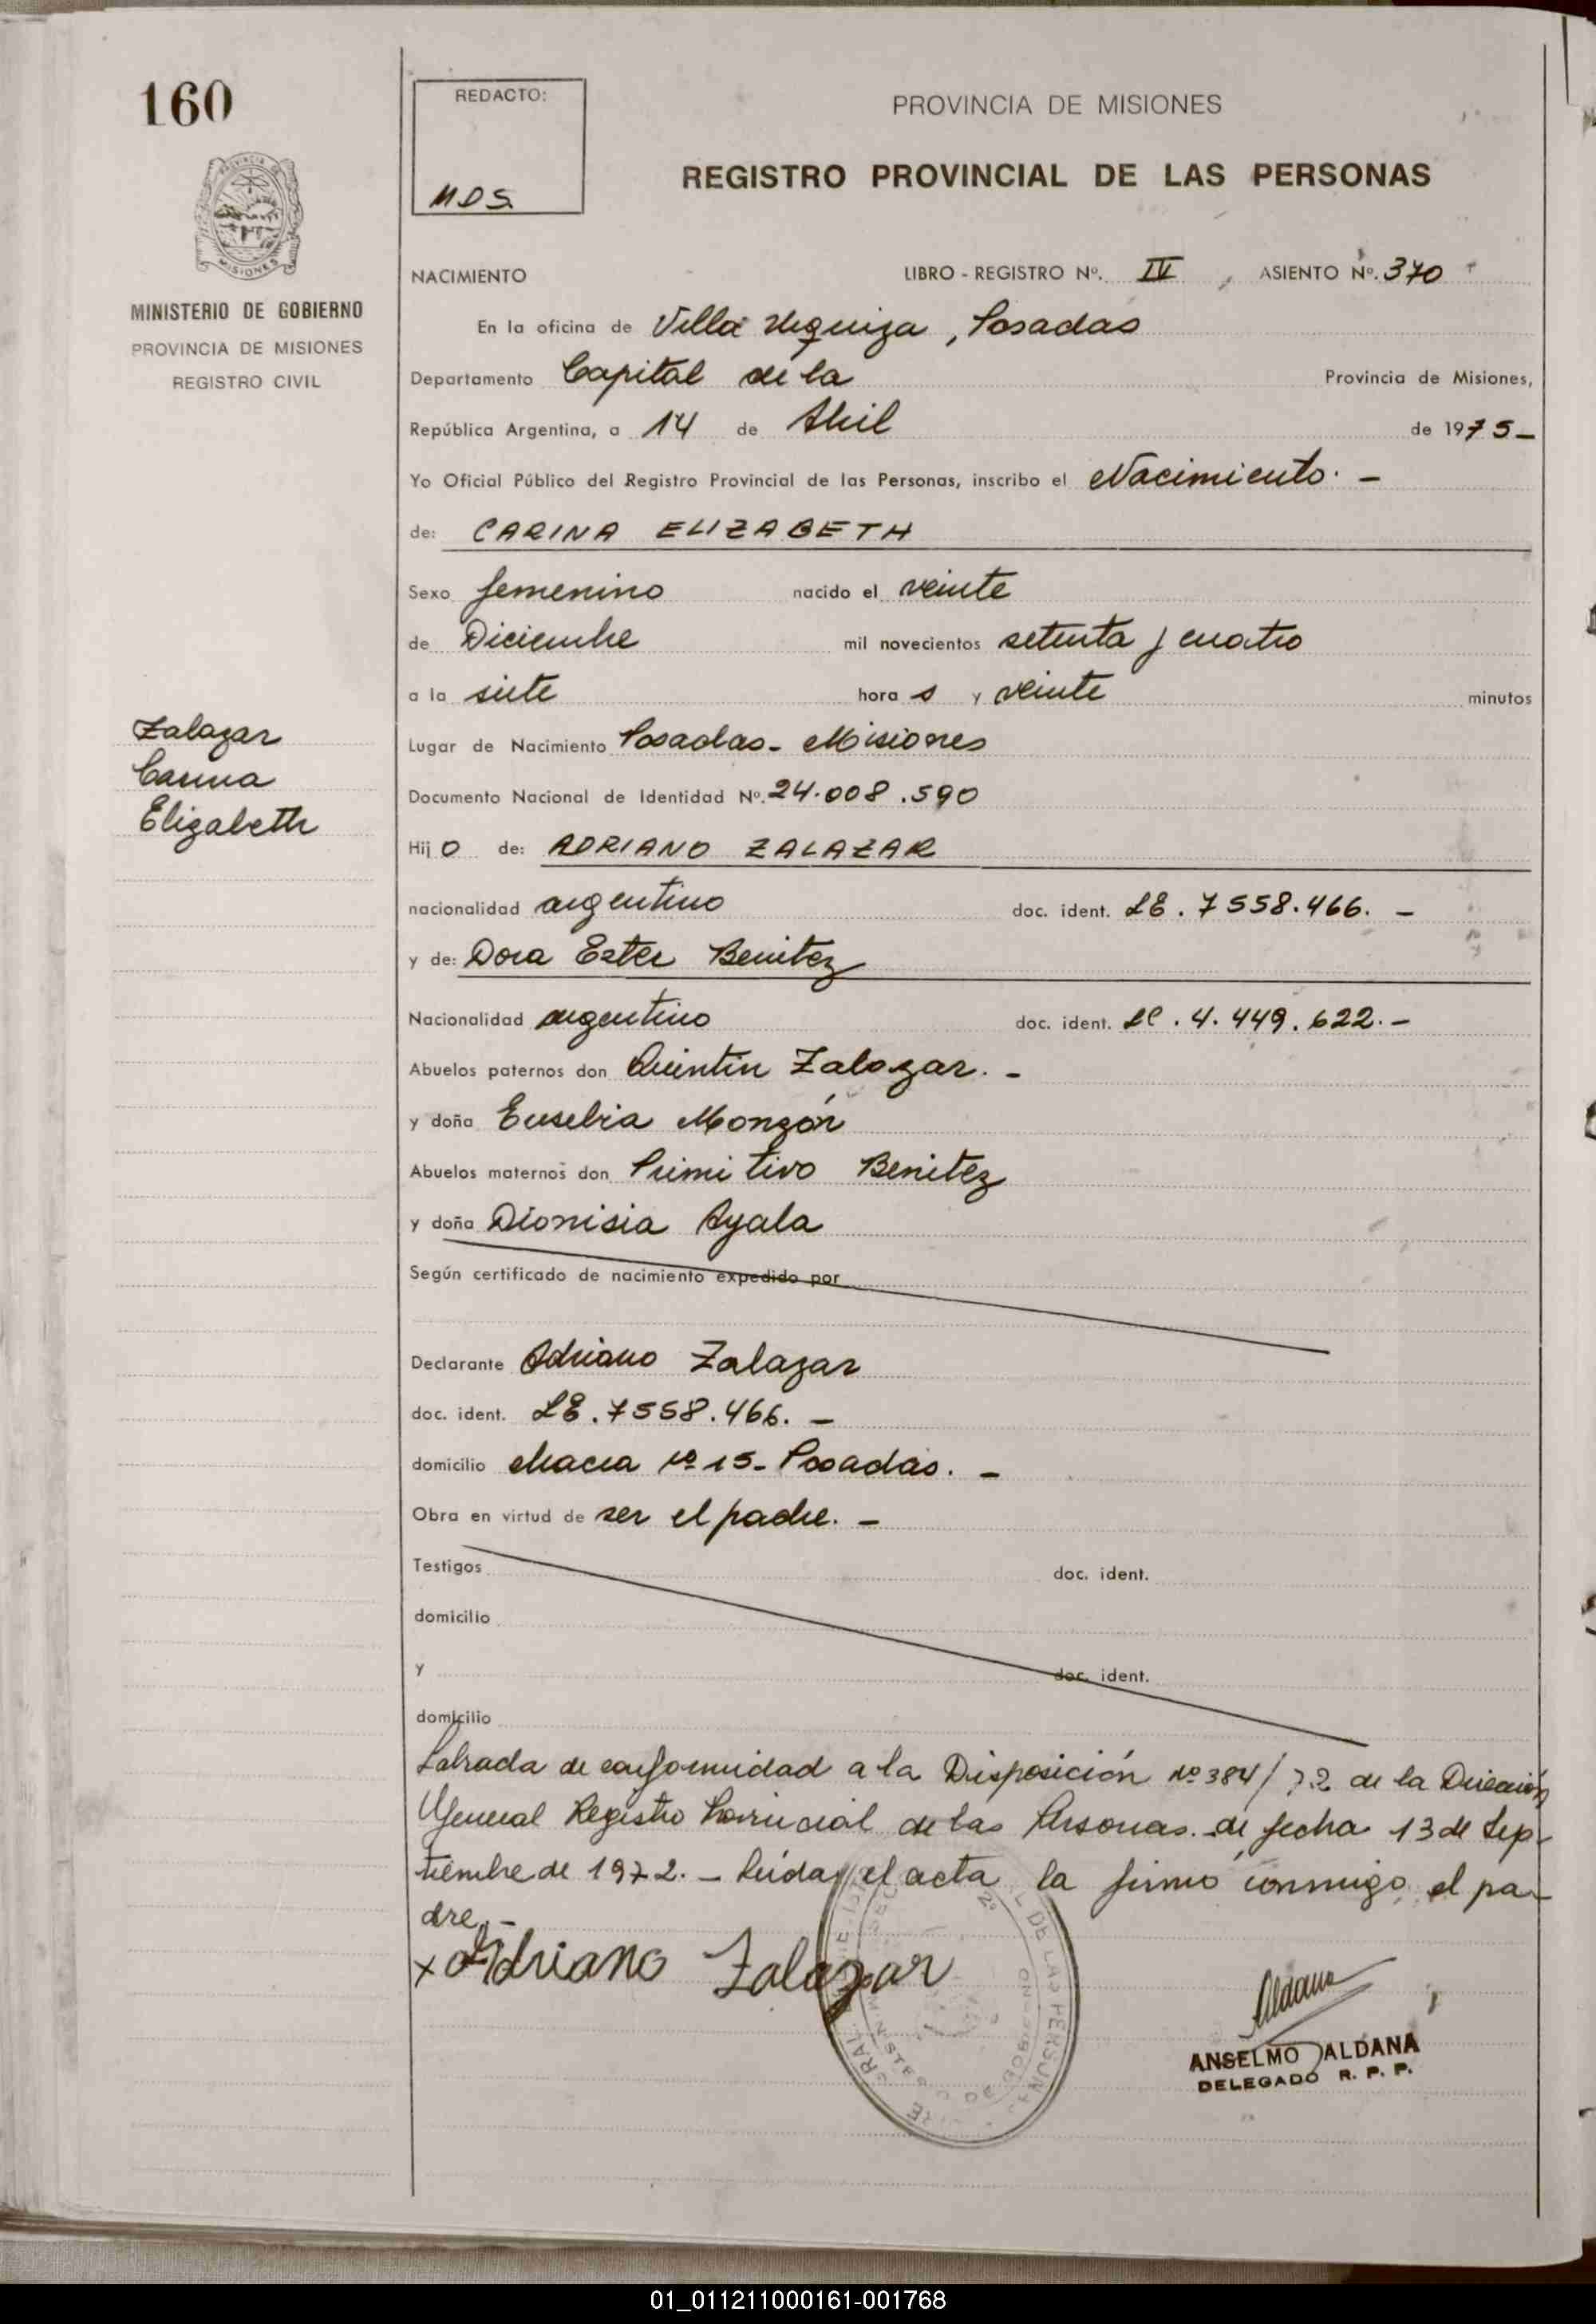 160
MINISTERIO DE GOBIERNO
PROVINCIA DE MISIONES
REGISTRO CIVIL
Zalazar
Carina
Elizabeth
REDACTO:
MDS.
PROVINCIA DE MISIONES
REGISTRO PROVINCIAL DE LAS PERSONAS
NACIMIENTO LIBRO - REGISTRO Nº. IV, ASIENTO Nº. 370
En la oficina de Villa Urquiza, Posadas
Departamento Capital de la Provincia de Misiones,
República Argentina, a 14 de Abril de 1975-
Yo Oficial Público del Registro Provincial de las Personas, inscribo el Nacimiento. -
de: CARINA ELIZABETH
Sexo femenino nacido el veinte
de Diciembre mil novecientos setenta y cuatro
a la siete hora s y veinte minutos
Lugar de Nacimiento Posadas- Misiones
Documento Nacional de Identidad Nº. 24.008.590
Hij o de: ADRIANO ZALAZAR
nacionalidad argentino doc. ident. LE. 7558.466. -
y de: Dora Ester Benitez
Nacionalidad argentino doc. ident. LC. 4.449.622.-
Abuelos paternos don Quintín Zalazar. -
y doña Eusebia Monzón
Abuelos maternos don Primitivo Benitez
y doña Dionisia Ayala
Según certificado de nacimiento expedido por
Declarante Adriano Zalazar
doc. ident. LE. 7558.466. -
domicilio Chacra nº 15- Posadas. -
Obra en virtud de ser el padre. -
Testigos doc. ident.
domicilio
y doc. ident.
domicilio
Labrada de conformidad a la Disposición nº 384/72 de la Dirección
General Registro Provincial de las Personas. de fecha 13 de Sep-
tiembre de 1972. - Leída el acta la firmó conmigo el pa-
dre. -
x Adriano Zalazar
Aldana
ANSELMO ALDANA
DELEGADO R. P. P.
01_011211000161-001768